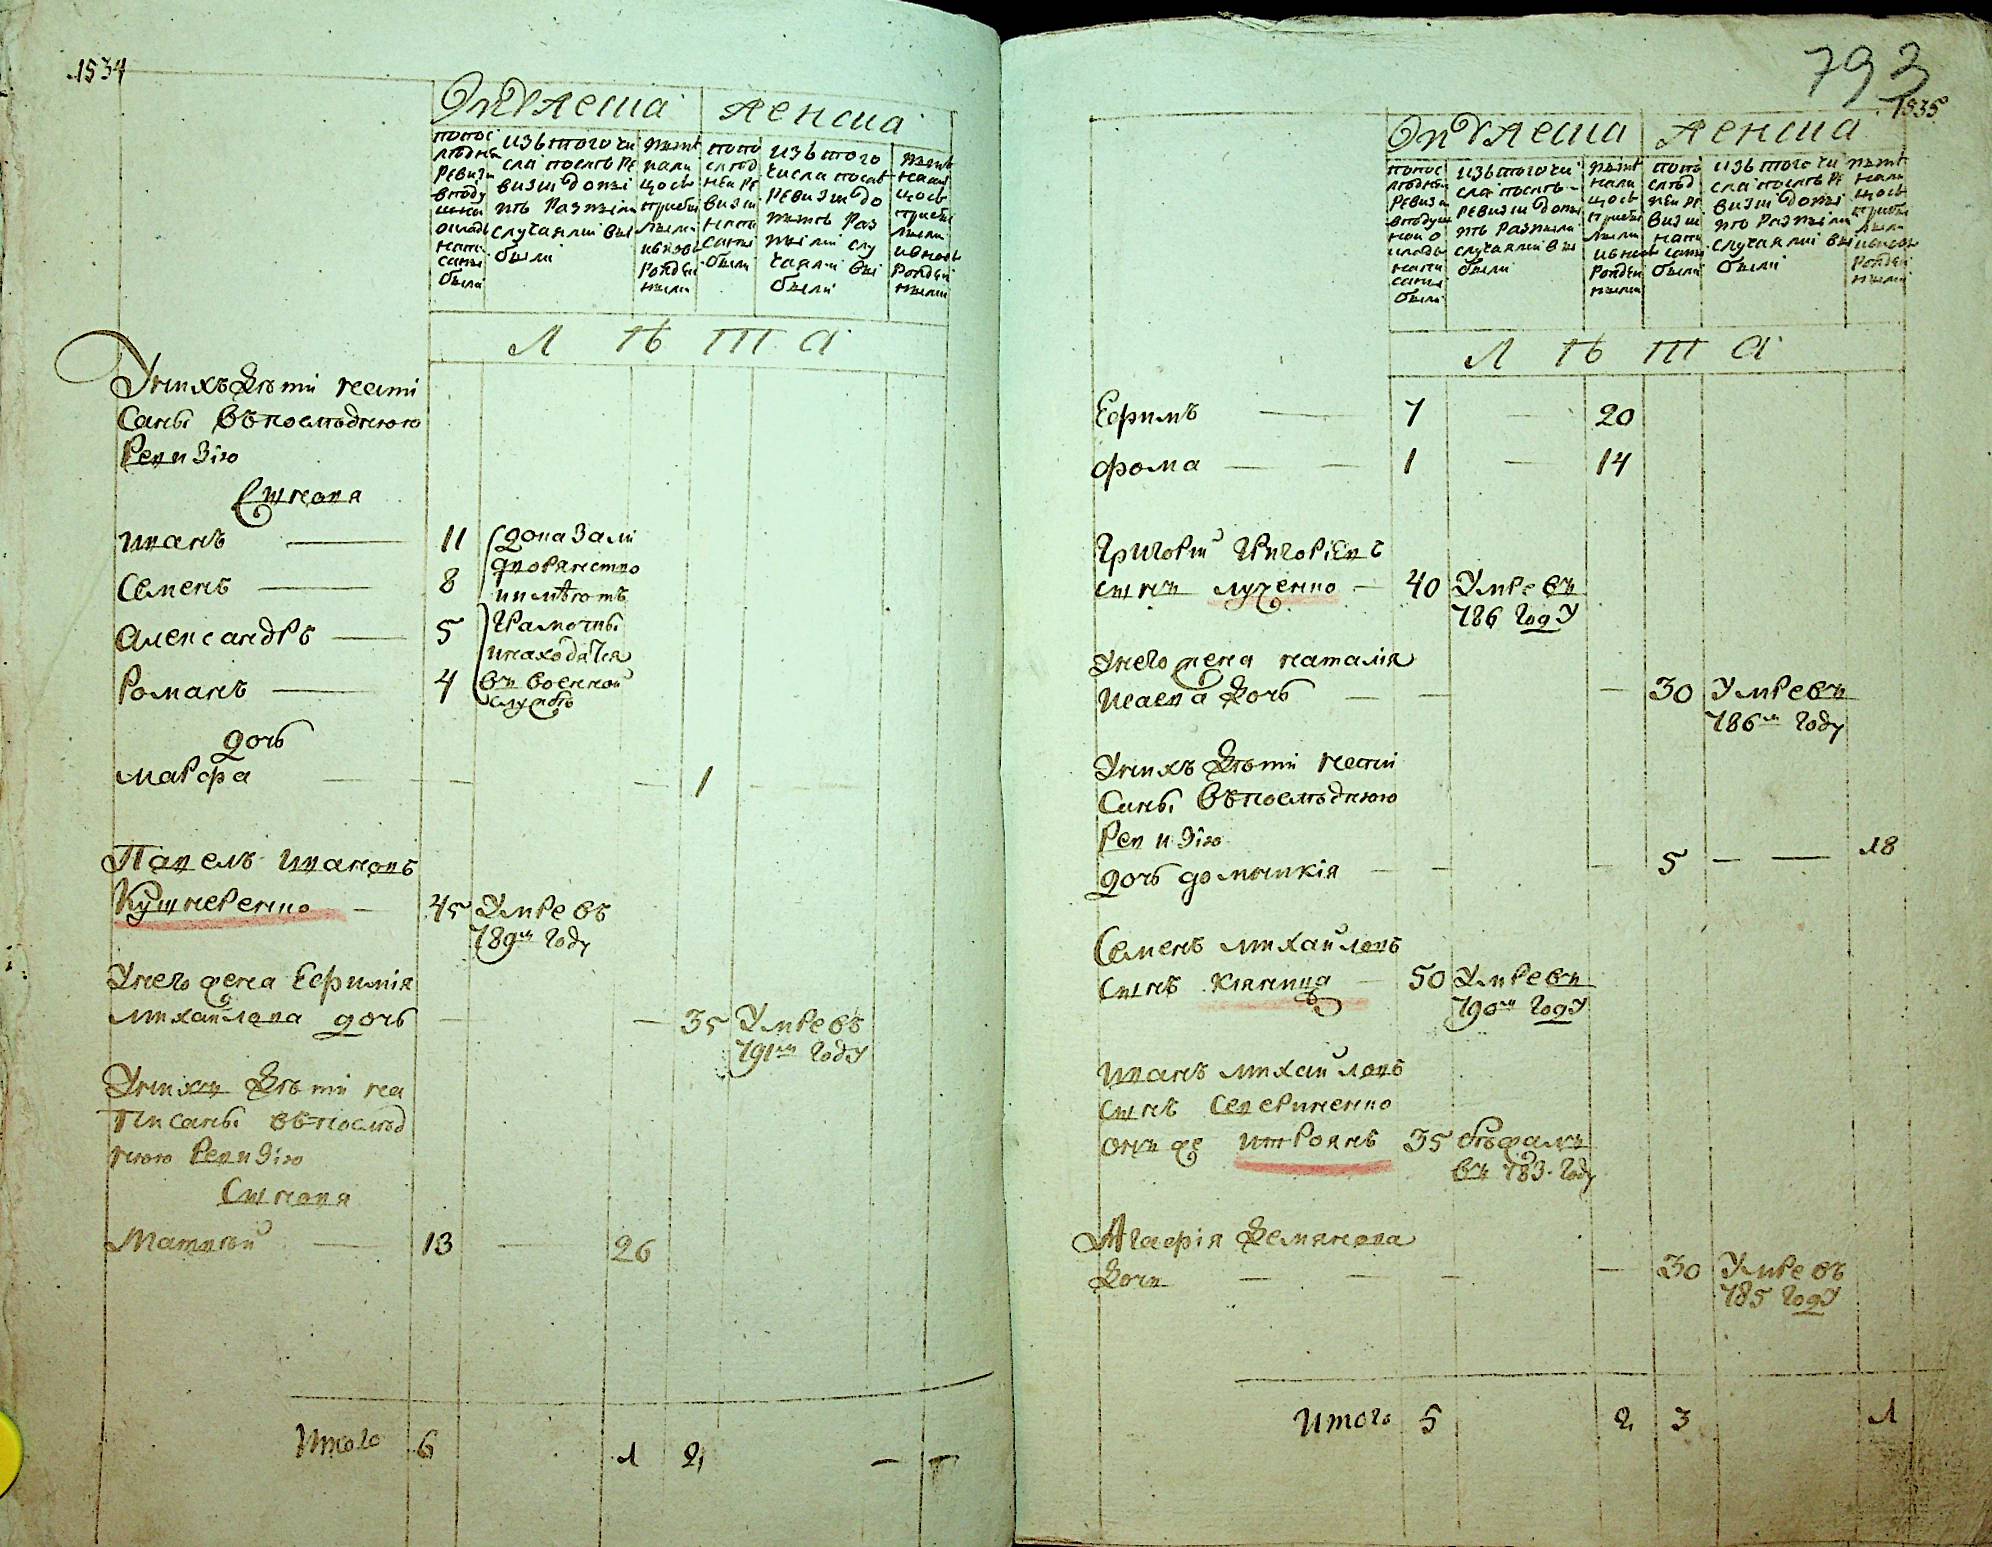 1534
Мужеска Женска
попос
лѣдней
ревизи
вподу
шно
окладѣ
напи
саны
были
изътого чи
сла послѣ ре
визіи допы
нѣ разными
случаями вы
были
нынѣ
нали
цось
прибы
лыми
ивновь
рожден
ными
попо
слѣд
ней ре
визіи
напи
саны
были
изътого
числа послѣ
ревизіи до
нынѣ раз
ными слу
чаями вы
были
нынѣ
нали
цось
прибы
лыми
ивновь
рожден
ными
Л Ѣ Т А
Унихъ дѣти напи
саны въпослѣднюю
ревизію
Сыновя
иванъ 11
Семенъ 8
александръ 5
Романъ 4
доказали
дворянство
иимѣютъ
грамоты
инаходятся
въ военной
службѣ
дочь
марфа 1
Павелъ ивановъ
Кушнеренко 45 Умре въ
789м году
Унего жена Ефимія
михайлова дочь 35 Умре въ
791м году
Унихъ дѣти на
писаны въпослѣд
нюю ревизію
Сыновя
Матвѣй 13 26
Итого 6 1 2
793
1535
Мужеска Женска
попос
лѣдней
ревизи
вподуш
ном о
кладѣ
напи
саны
были
изътого чи
сла послѣ
ревизіи допы
нѣ разными
случаями вы
были
нынѣ
нали
цось
прибы
лыми
ивновь
рожден
ными
попо
слѣд
ней ре
визіи
напи
саны
были
изъ того чи
сла послѣ ре
визіи допы
нѣ разными
случаями вы
были
нынѣ
нали
цось
прибы
лыми
ивновь
рожден
ными
Л Ѣ Т А
Ефимъ 7 20
фома 1 14
Григорій Григоріевъ
сынъ луценко 40 Умре въ
786 году
Унего жена наталія
исаева дочь 30 Умре въ
786м году
Унихъ дѣти напи
саны въпослѣднюю
ревизію
дочь домникія 5 18
Семенъ михайловъ
сынъ кияница 50 Умре въ
790м году
иванъ михайловъ
сынъ Севериненко
онъ же итроянъ 35 бѣжалъ
въ 783 году
Агафія демянова
дочь 30 Умре въ
785 году
Итого 5 2 3 1